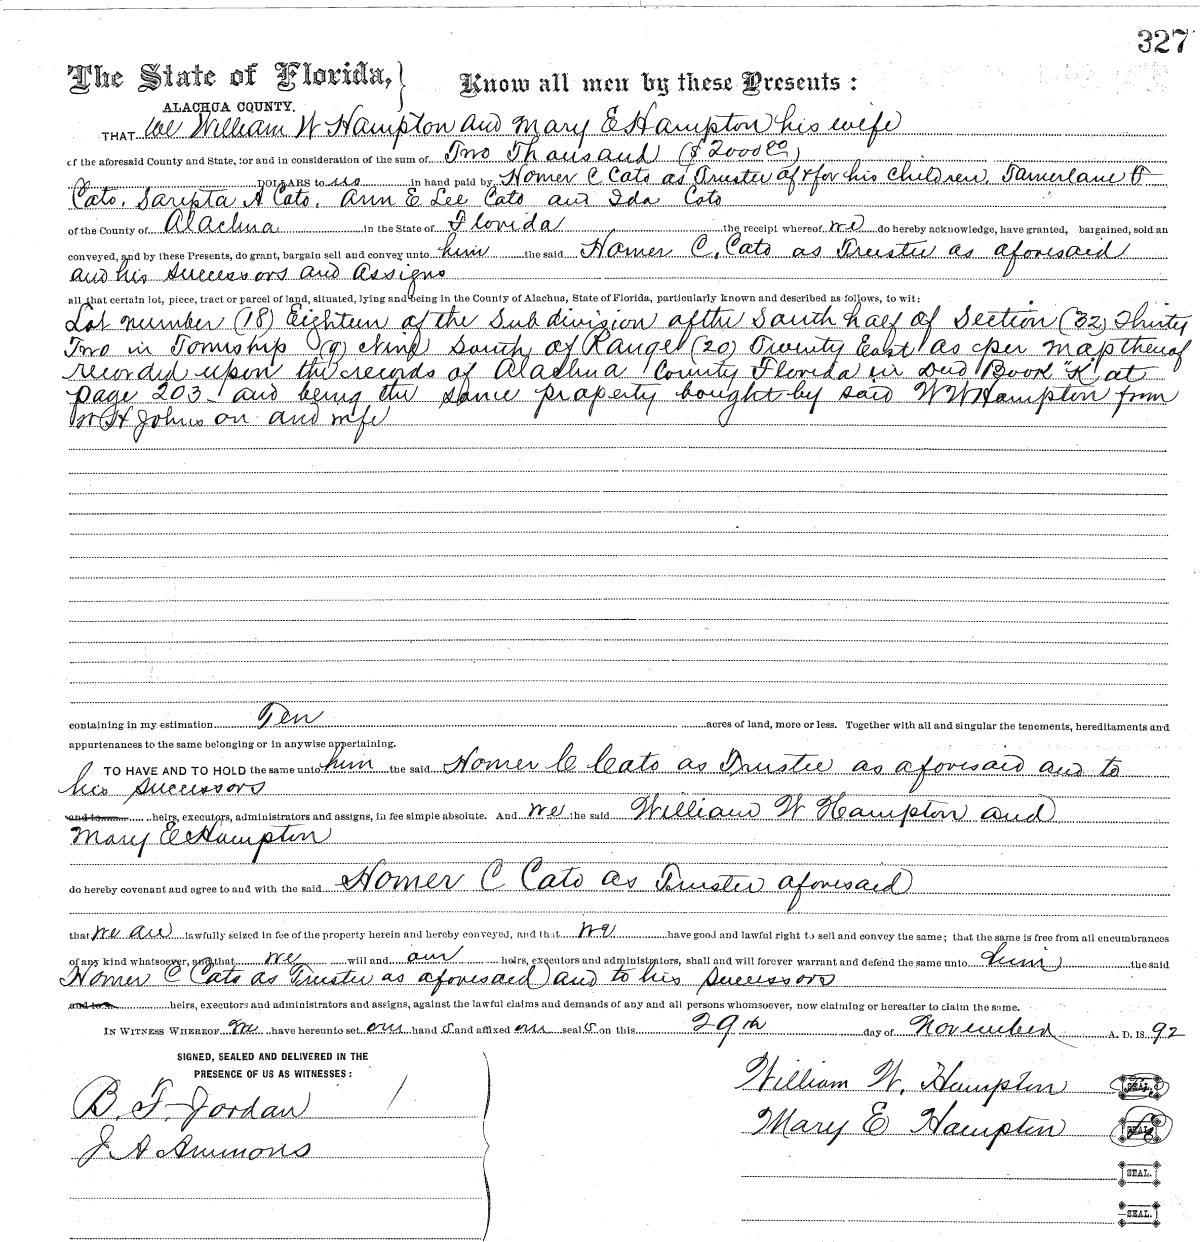 327
The State of Florida, } Know all men by these Presents :
ALACHUA COUNTY.
THAT We William W Hampton and Mary E Hampton his wife
of the aforesaid County and State, for and in consideration of the sum of Two Thousand ($2000 00)
DOLLARS to us in hand paid by Homer C Cato as Trustee of & for his children, Tamerlane
Cato, Saripta A Cato, Ann E Lee Cato and Ida Cato
of the County of Alachua in the State of Florida the receipt whereof we do hereby acknowledge, have granted, bargained, sold an
conveyed, and by these Presents, do grant, bargain sell and convey unto him the said Homer C. Cato as Trustee as aforesaid
and his successors and assigns
all that certain lot, piece, tract or parcel of land, situated, lying and being in the County of Alachua, State of Florida, particularly known and described as follows, to wit:
Lot number (18) Eighteen of the Subdivision of the South half of Section (32) Thirty
Two in Township (9) Nine South of Range (20) Twenty East as per map thereof
recorded upon the records of Alachua County Florida in Deed Book "K" at
page 203 and being the same property bought by said W W Hampton from
W H Johnson and wife
containing in my estimation Ten acres of land, more or less. Together with all and singular the tenements, hereditaments and
appurtenances to the same belonging or in anywise appertaining.
TO HAVE AND TO HOLD the same unto him the said Homer C Cato as Trustee as aforesaid and to
his successors
and to heirs, executors, administrators and assigns, in fee simple absolute. And we the said William W Hampton and
Mary E Hampton
do hereby covenant and agree to and with the said Homer C Cato as Trustee aforesaid
that we are lawfully seized in fee of the property herein and hereby conveyed, and that we have good and lawful right to sell and convey the same; that the same is free from all encumbrances
of any kind whatsoever, and that we will and our heirs, executors and administrators, shall and will forever warrant and defend the same unto him the said
Homer C Cato as Trustee as aforesaid and to his successors
and to heirs, executors and administrators and assigns, against the lawful claims and demands of any and all persons whomsoever, now claiming or hereafter to claim the same.
IN WITNESS WHEREOF we have hereunto set our hand s and affixed our seal s on this 29th day of November A. D. 18 92
SIGNED, SEALED AND DELIVERED IN THE
PRESENCE OF US AS WITNESSES :
B. F. Jordan
J A Ammons
William W. Hampton SEAL.
Mary E Hampton SEAL.
SEAL.
SEAL.